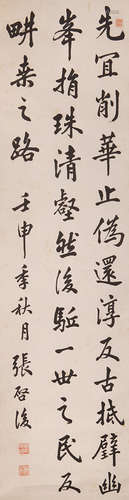 先宜削華止偽還淳反古抵璧幽
峯捐珠清壑然後駈一世之民反
畊桑之路 壬申季秋月 張啓後